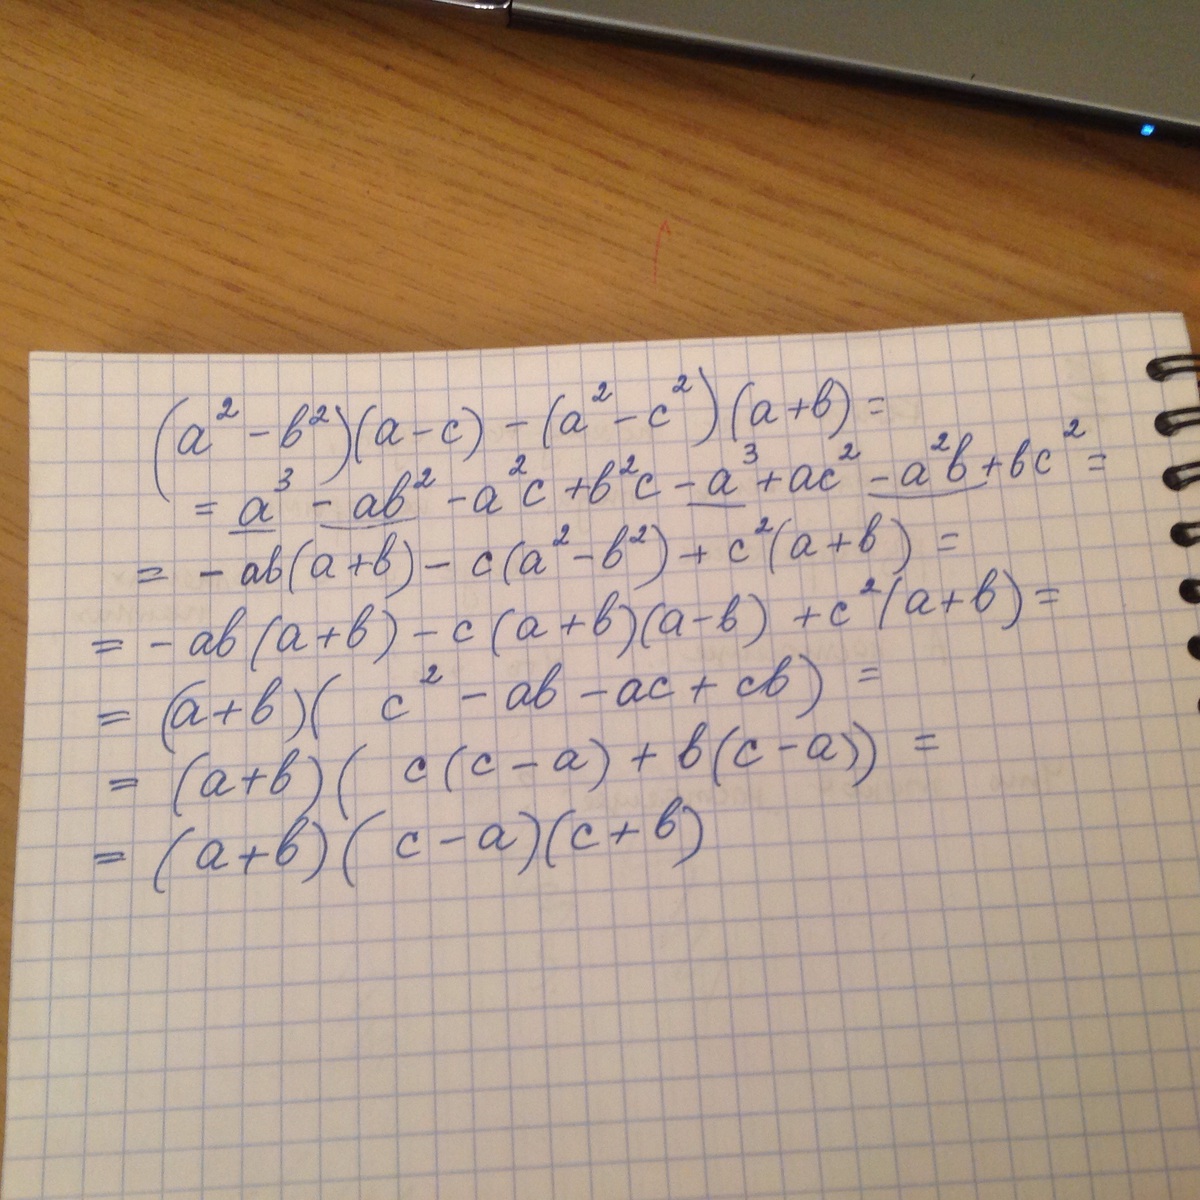 (a² - b²)(a - c) - (a² - c²)(a + b) =
= a³ - ab² - a²c + b²c - a³ + ac² - a²b + bc² =
= - ab(a + b) - c(a² - b²) + c²(a + b) =
= - ab(a + b) - c(a + b)(a - b) + c²(a + b) =
= (a + b)( c² - ab - ac + cb) =
= (a + b)( c(c - a) + b(c - a)) =
= (a + b)( c - a)(c + b)